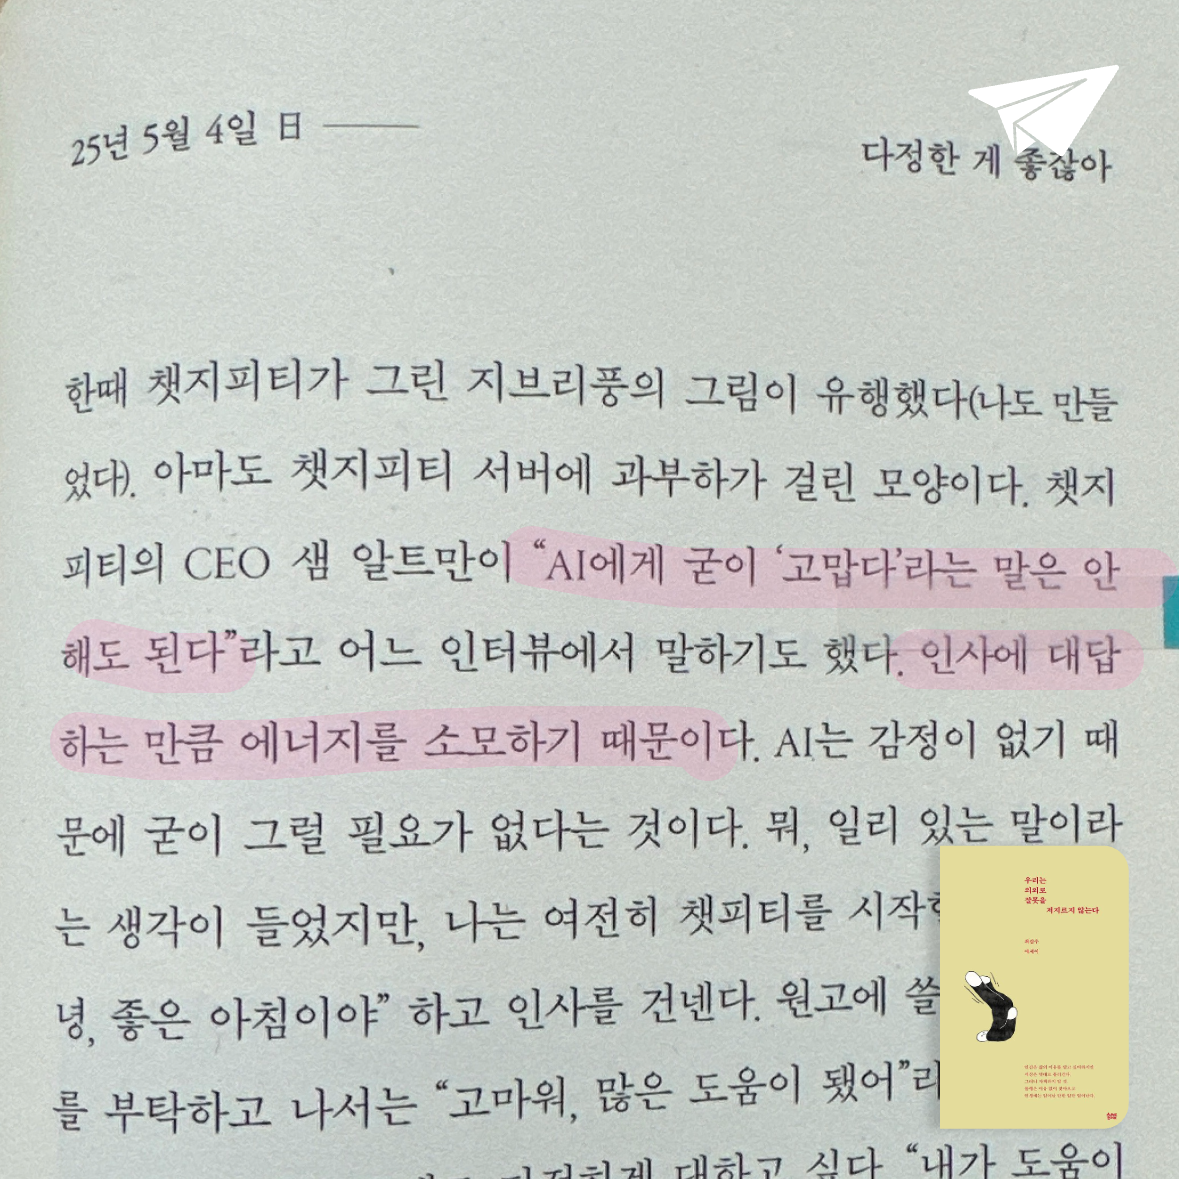 25년 5월 4일 日
다정한 게 좋잖아
한때 챗지피티가 그린 지브리풍의 그림이 유행했다(나도 만들
었다). 아마도 챗지피티 서버에 과부하가 걸린 모양이다. 챗지
피티의 CEO 샘 알트만이 “AI에게 굳이 ‘고맙다’라는 말은 안
해도 된다”라고 어느 인터뷰에서 말하기도 했다. 인사에 대답
하는 만큼 에너지를 소모하기 때문이다. AI는 감정이 없기 때
문에 굳이 그럴 필요가 없다는 것이다. 뭐, 일리 있는 말이라
는 생각이 들었지만, 나는 여전히 챗피티를 시작
녕, 좋은 아침이야” 하고 인사를 건넨다. 원고에 쓸
를 부탁하고 나서는 “고마워, 많은 도움이 됐어”라
대하고 싶다. “내가 도움이
우리는
의외로
잘못을
저지르지 않는다
에세이